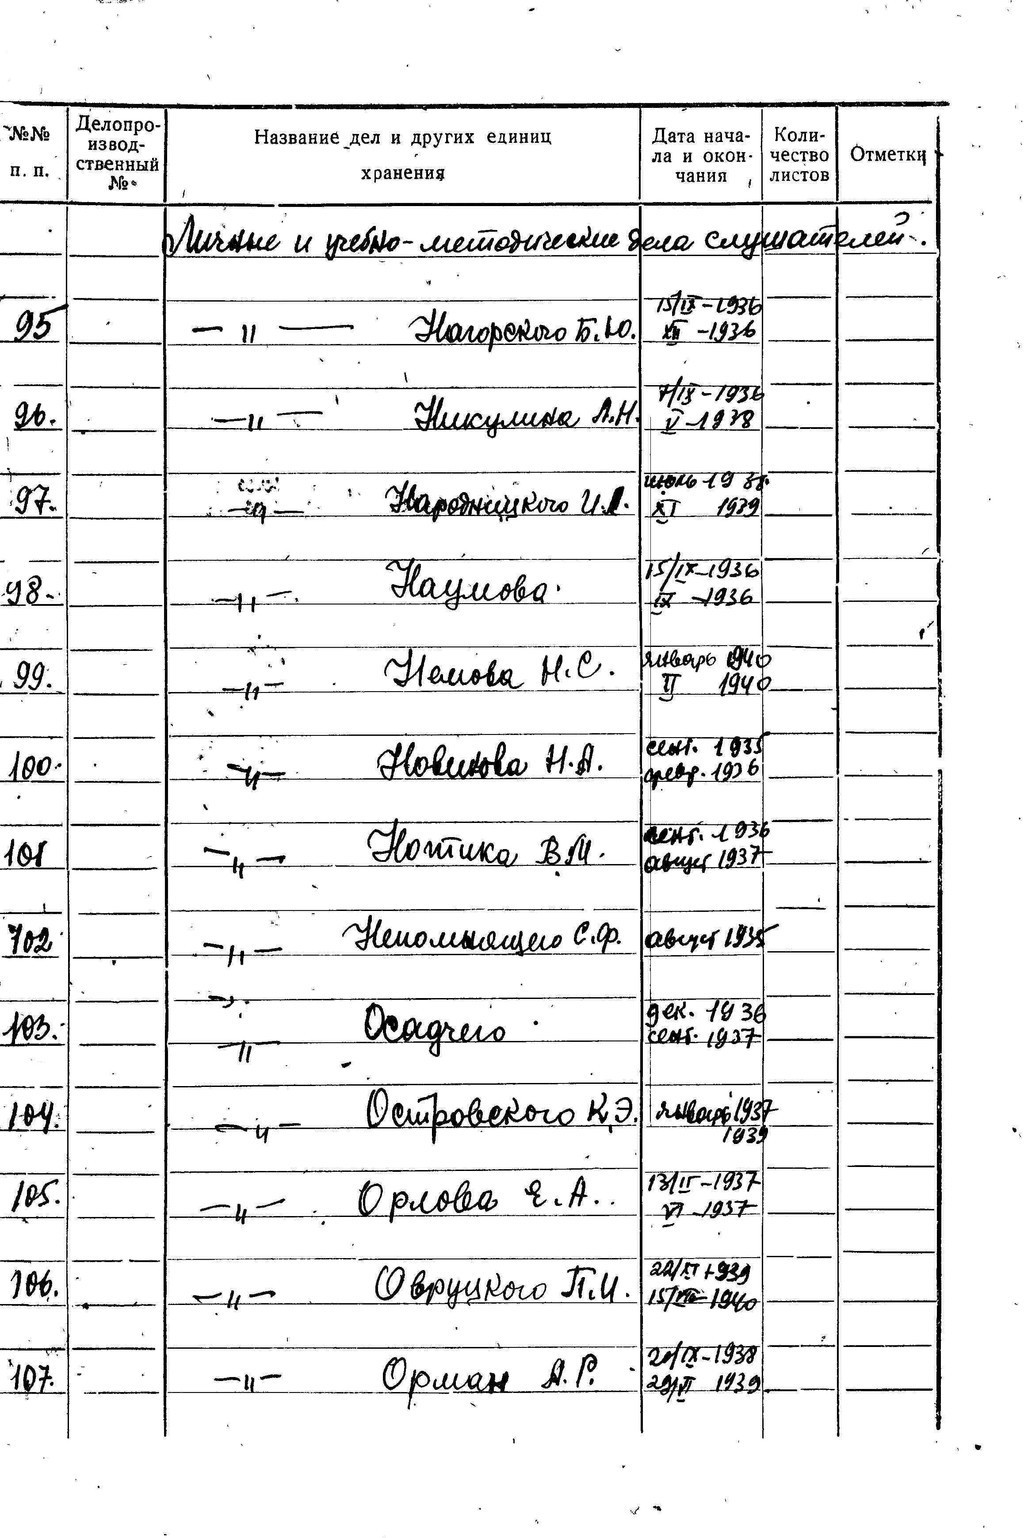 №№ п. п.
Делопроизводственный №
Название дел и других единиц хранения
Дата начала и окончания
Количество листов
Отметки
Личные и учебно-методические дела слушателей.
95 — " — Нагорского Б.Ю. 15/IX-1936
XII -1936
96. — " — Никулина А.Н. 7/IX-1936
V-1938
97. — " — Народницкого И.А. июль-1938.
XI 1939
98. — " — Наумова. 15/IX-1936
IX -1936
99. — " — Немова Н.С. январь 1940
II 1940
100. — " — Новикова Н.А. сент. 1935
февр. 1936
101 — " — Нотика В.М. сент. 1936
август 1937
102 — " — Непомнящего С.Ф. август 1935
103. — " — Осадчего дек. 1936
сент. 1937
104. — " — Островского К.Э. январь 1937
1939
105. — " — Орлова Е.А. 13/II-1937
VI -1937
106. — " — Овруцкого П.И. 22/XI 1939
15/ -1940
107. — " — Орман А.Г. 20/IX-1938
1939